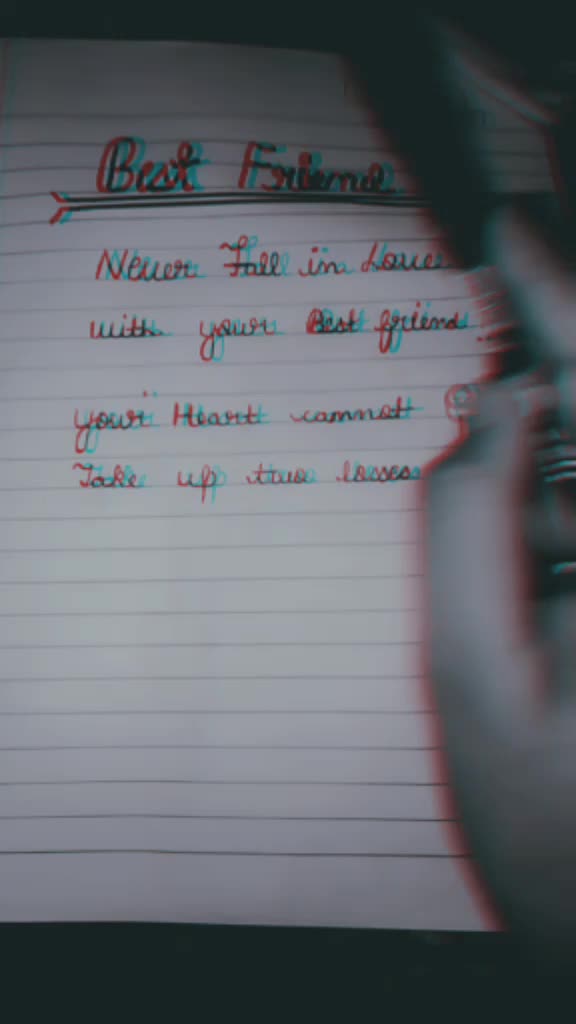 Best Friend
Never Fall in Love
with your Best friend
your Heart cannot
Take up two losses